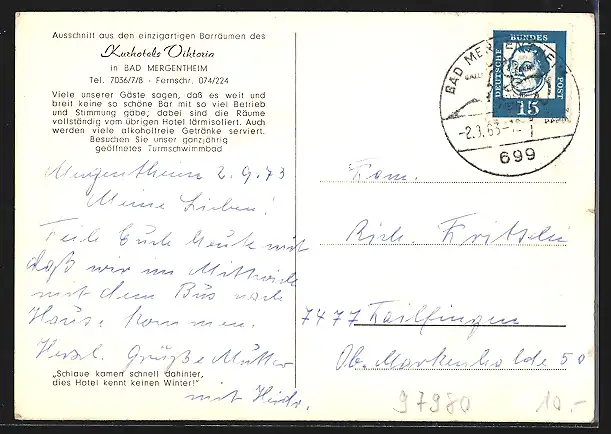 Ausschnitt aus den einzigartigen Barräumen des
Kurhotels Viktoria
in BAD MERGENTHEIM
Tel. 7036/7/8 · Fernschr. 074/224
Viele unserer Gäste sagen, daß es weit und
breit keine so schöne Bar mit so viel Betrieb
und Stimmung gabe; dabei sind die Räume
vollständig vom übrigen Hotel lärmisoliert. Auch
werden viele alkoholfreie Getränke serviert.
Besuchen Sie unser ganzjährig
geöffnetes Turmschwimmbad
Mergentheim 2.9.73
Meine Lieben!
Teile Euch heute mit
daß wir im Mittwoch
mit dem Bus nach
Hause kommen.
Herzl. Grüße Mutter
mit
„Schlaue kamen schnell dahinter,
dies Hotel kennt keinen Winter!"
DEUTSCHE BUNDESPOST
15
BAD MERGENTHEIM
-2.9.63-
699
Fam.
Rich. Fritschi
7477 Tailfingen
Ob. Markenhalde 50
97980
10.-